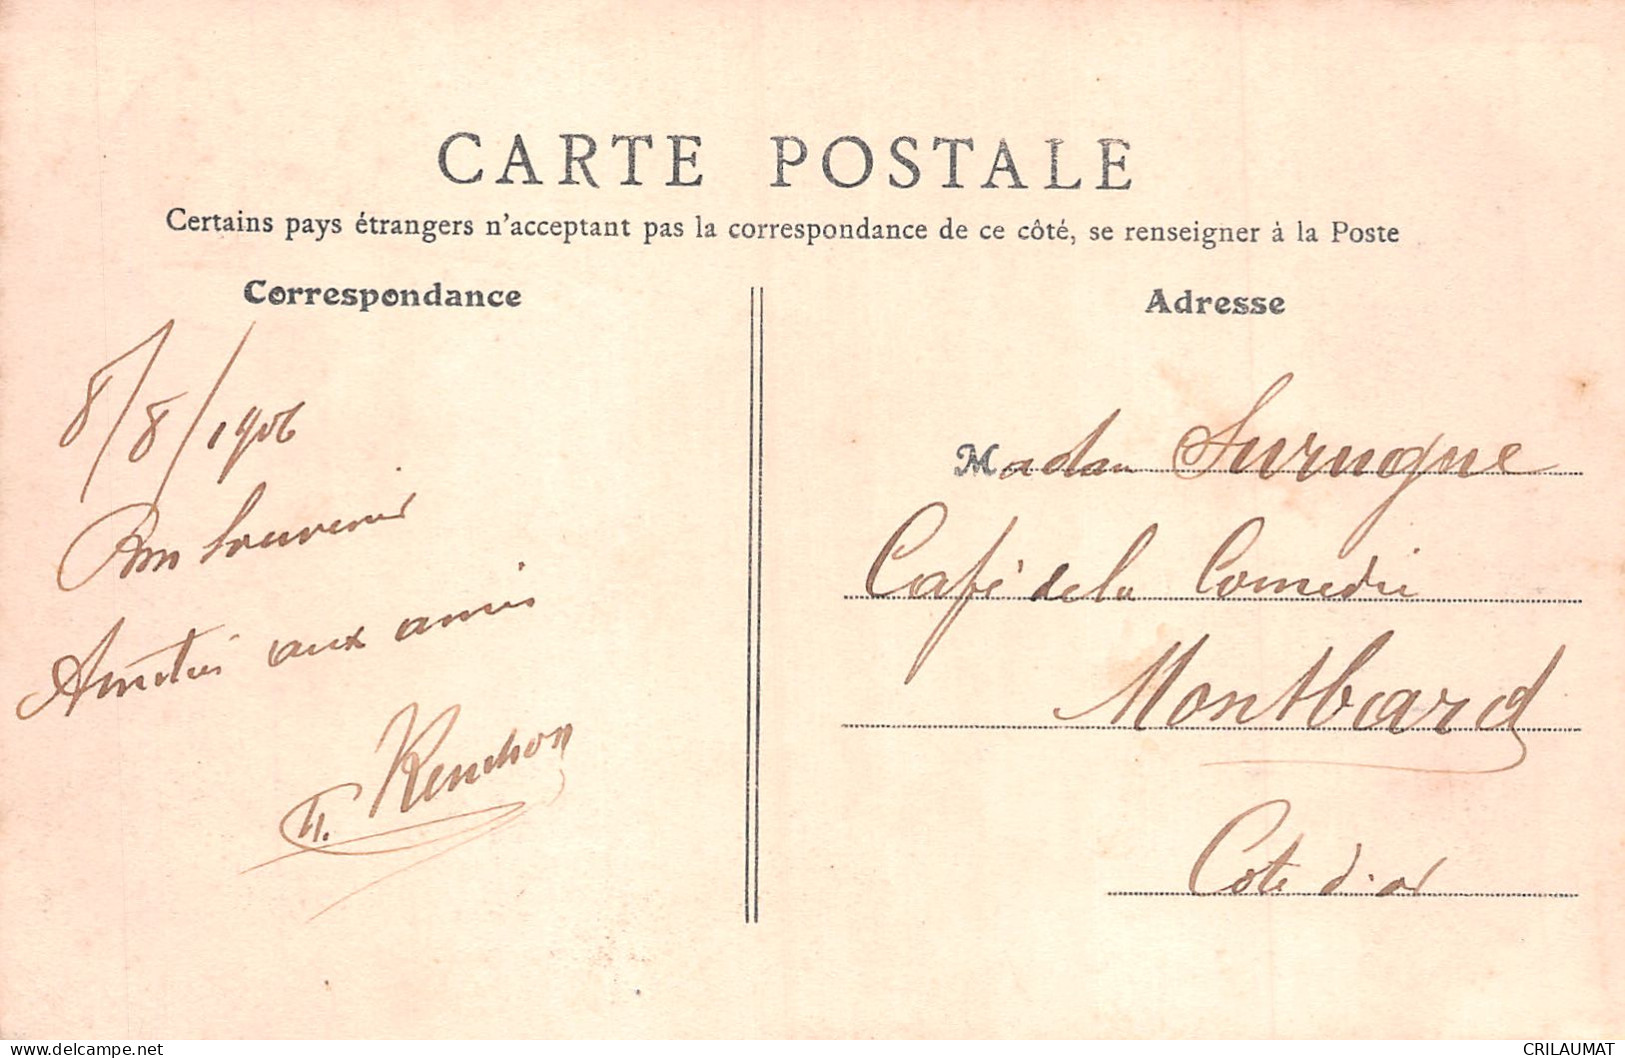 CARTE POSTALE
Certains pays étrangers n'acceptent pas la correspondance de ce côté, se renseigner à la Poste
Correspondance
8/8/1906
Bon Souvenir
Amitiés aux amis
Renchon
Adresse
Madam Surugue
Café de la Comedie
Montbard
Cote d'or
www.delcampe.net
CRILAUMAT